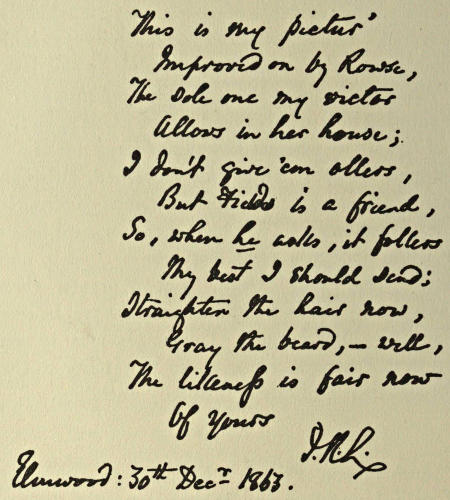 This is my pictur'
Improved on by Rowse,
The sole one my victor
Allows in her house;
I don't give 'em ollers,
But Fields is a friend,
So, when he asks, it follers
My best I should send;
Straighten the hair now,
Gray the beard, – well,
The likeness is fair now
Of Yours
J. R. L.
Elmwood: 30th Decr 1863.